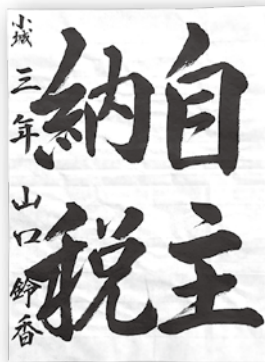 自主
納税
小城 三年 山口鈴香